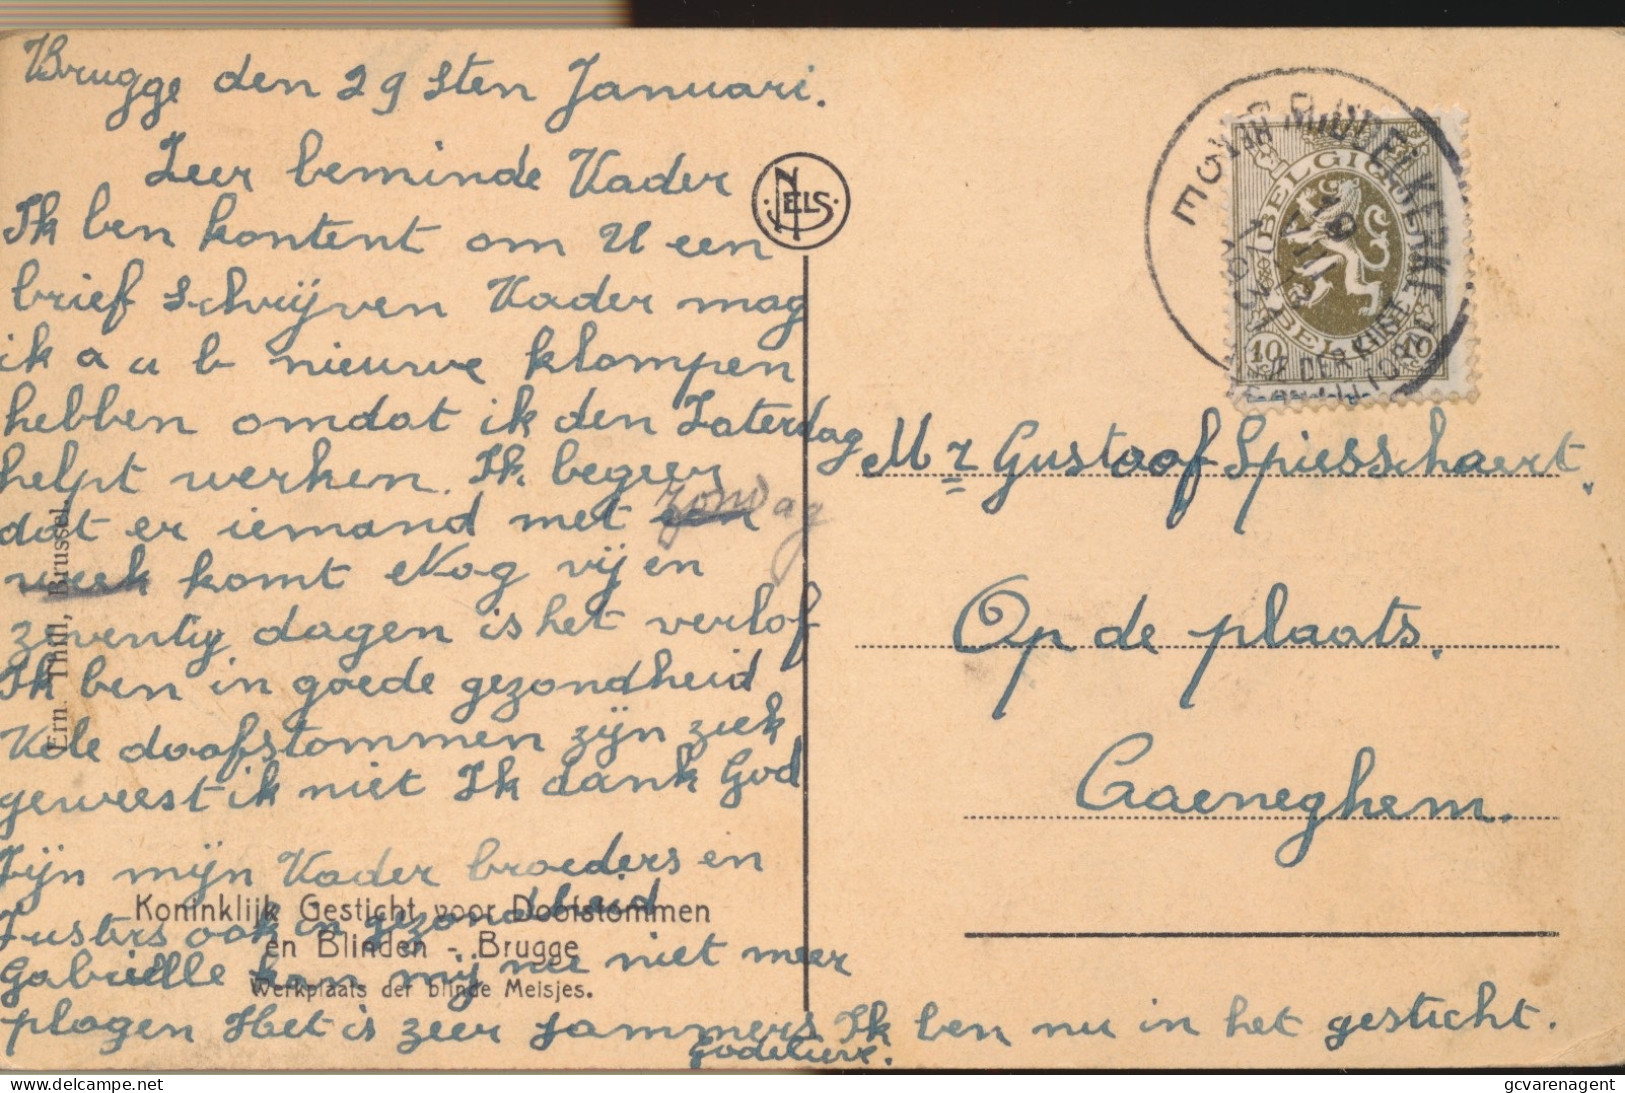 Brugge den 29sten Januari.
Zeer beminde Vader
Ik ben kontent om U een
brief schrijven Vader mag
ik a u b nieuwe klompen
hebben omdat ik den Zaterdag
helpt werken. Ik begeer
dat er iemand met een zondag
week komt Nog vij en
zeventig dagen is het verlof
Ik ben in goede gezondheid
Vele doofstommen zijn ziek
geweest ik niet Ik dank God
Zijn mijn Vader broeders en
Zusters ook in gezondheid
Gabrielle kan mij nu niet meer
plagen Het is zeer jammers Ik ben nu in het gesticht.
Godelieve.
Koninklijk Gesticht voor Doofstommen
en Blinden - Brugge
Werkplaats der blinde Meisjes.
Ern. Thill, Brussel.
NELS
BELGIQUE
BELGIË
10 10
Mr Gustaaf Spiesschaert
Op de plaats.
Caeneghem.
gcvarenagent
delcampe.net